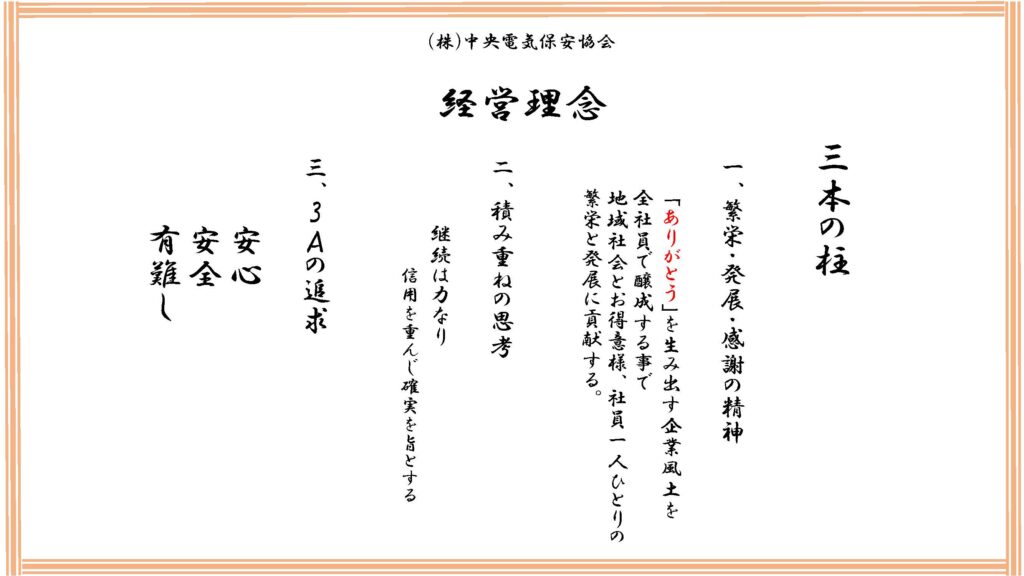 (株)中央電気保安協会
経営理念
三本の柱
一、繁栄・発展・感謝の精神
「ありがとう」を生み出す企業風土を
全社員で醸成する事で
地域社会とお得意様、社員一人ひとりの
繁栄と発展に貢献する。
二、積み重ねの思考
継続は力なり
信用を重んじ確実を旨とする
三、3Aの追求
安心
安全
有難し